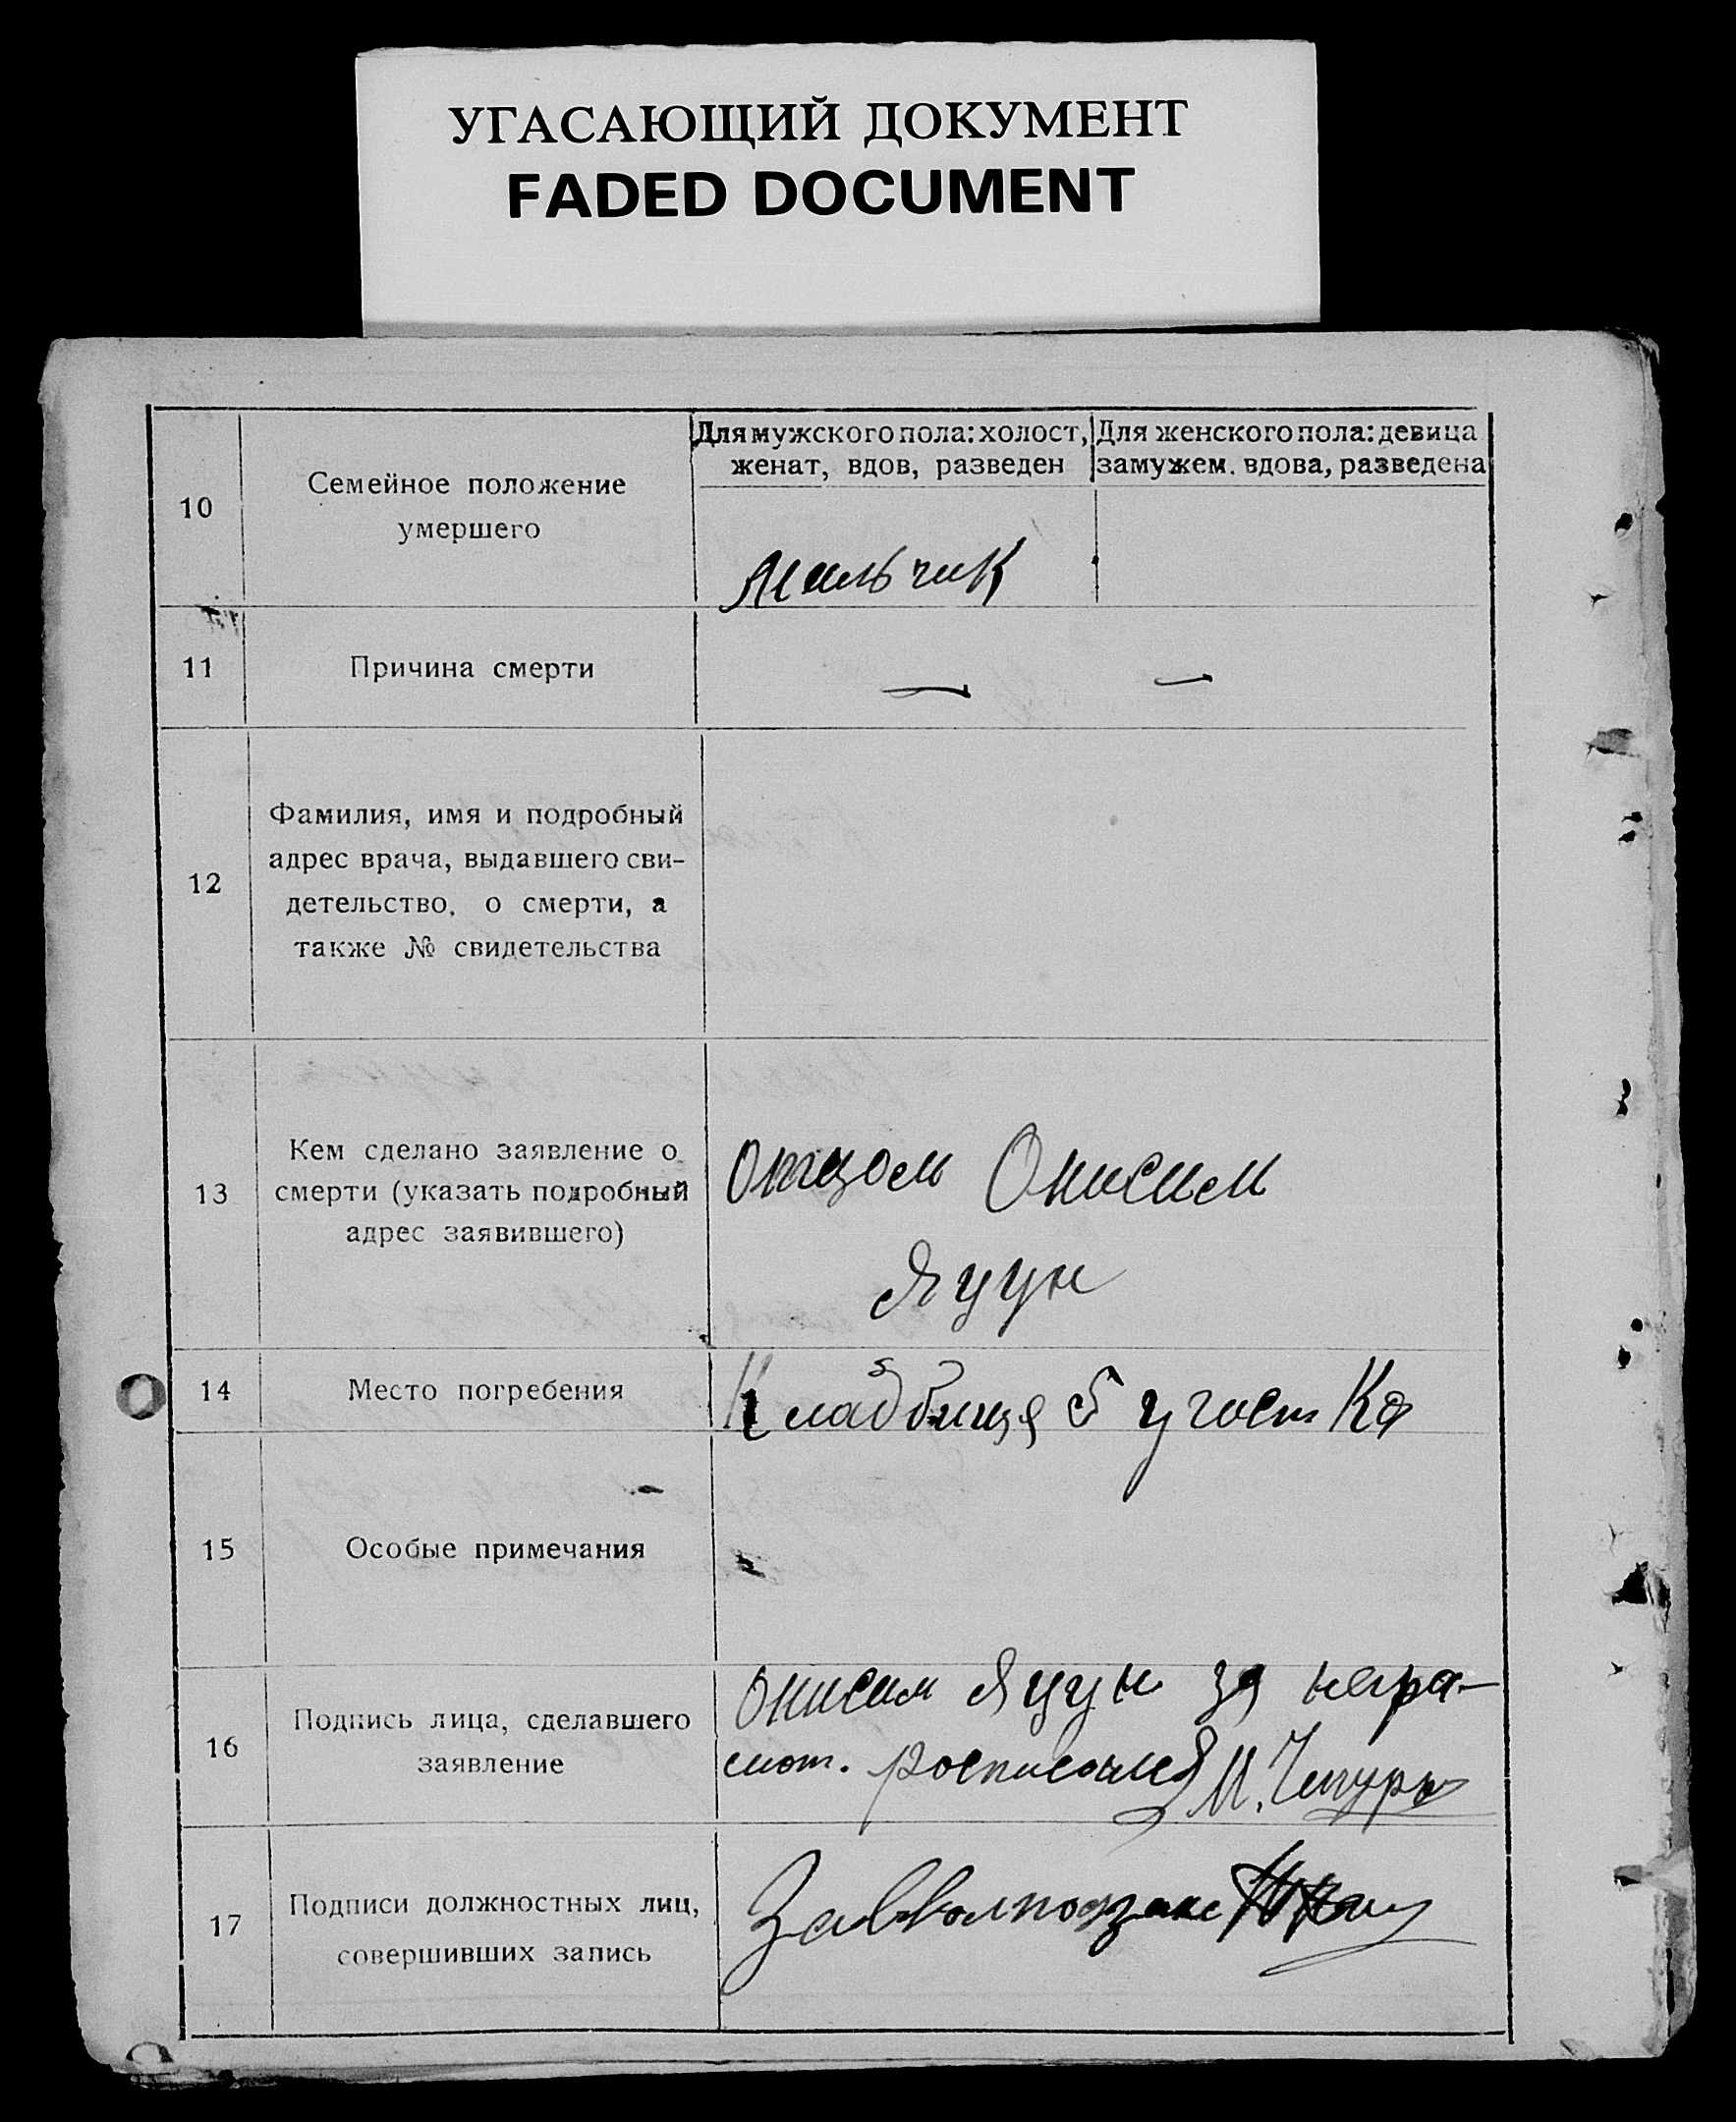 УГАСАЮЩИЙ ДОКУМЕНТ
FADED DOCUMENT
10
Семейное положение
умершего
Для мужского пола: холост,
женат, вдов, разведен
Для женского пола: девица
замужем. вдова, разведена
мальчик
11
Причина смерти
— —
12
Фамилия, имя и подробный
адрес врача, выдавшего сви-
детельство, о смерти, а
также № свидетельства
13
Кем сделано заявление о
смерти (указать подробный
адрес заявившего)
отцом Онисим
Яцун
14
Место погребения
Кладбище 5 участка
15
Особые примечания
16
Подпись лица, сделавшего
заявление
Онисим Яцун за негра-
мот. росписался М.
17
Подписи должностных лиц,
совершивших запись